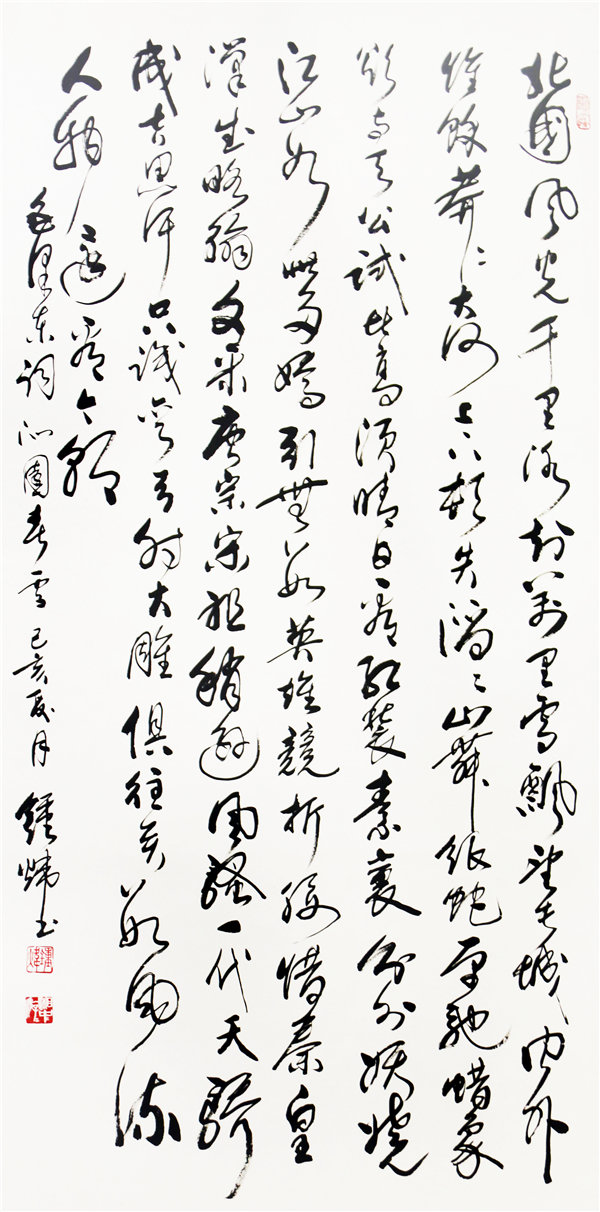 北國風光千里冰封萬里雪飄望長城内外
惟餘莽々大河上下頓失滔々山舞銀蛇原馳蜡象
欲与天公試比高須晴日看紅裝素裹分外妖嬈
江山如此多嬌引無數英雄競折腰惜秦皇
漢武略輸文采唐宗宋祖稍遜風騷一代天驕
成吉思汗只識彎弓射大雕俱往矣數風流
人物還看今朝
毛澤東詞沁園春雪己亥夏月鍾煒书